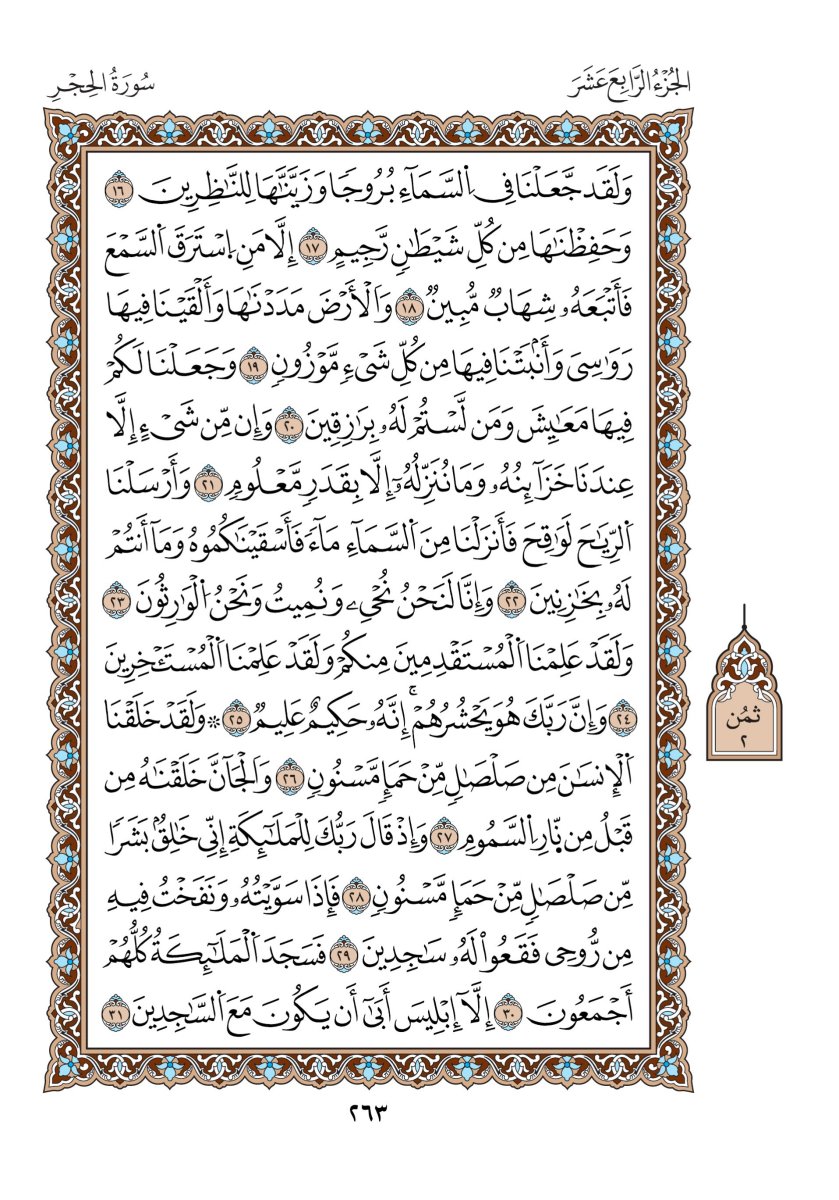 الجُزْءُ الرَّابِعَ عَشَرَ
سُورَةُ الحِجْرِ
وَلَقَد جَّعَلْنَا فِي اِ۬لسَّمَآءِ بُرُوجٗا وَزَيَّنَّٰهَا لِلنَّٰظِرِينَ ١٦
وَحَفِظْنَٰهَا مِن كُلِّ شَيْطَٰنٖ رَّجِيمٍ ١٧ إِلَّا مَنِ اِ۪سْتَرَقَ اَ۬لسَّمْعَ
فَأَتْبَعَهُۥ شِهَابٞ مُّبِينٞ ١٨ وَالْأَرْضَ مَدَدْنَٰهَا وَأَلْقَيْنَا فِيهَا
رَوَٰسِيَ وَأَنۢبَتْنَا فِيهَا مِن كُلِّ شَيْءٖ مَّوْزُونٖ ١٩ وَجَعَلْنَا لَكُمْ
فِيهَا مَعَٰيِشَ وَمَن لَّسْتُمْ لَهُۥ بِرَٰزِقِينَ ٢٠ وَإِن مِّن شَيْءٍ إِلَّا
عِندَنَا خَزَآئِنُهُۥ وَمَا نُنَزِّلُهُۥٓ إِلَّا بِقَدَرٖ مَّعْلُومٖ ٢١ وَأَرْسَلْنَا
اَ۬لرِّيَٰحَ لَوَٰقِحَ فَأَنزَلْنَا مِنَ اَ۬لسَّمَآءِ مَآءٗ فَأَسْقَيْنَٰكُمُوهُ وَمَآ أَنتُمْ
لَهُۥ بِخَٰزِنِينَ ٢٢ وَإِنَّا لَنَحْنُ نُحْيِۦ وَنُمِيتُ وَنَحْنُ اُ۬لْوَٰرِثُونَ ٢٣
وَلَقَدْ عَلِمْنَا اَ۬لْمُسْتَقْدِمِينَ مِنكُمْ وَلَقَدْ عَلِمْنَا اَ۬لْمُسْتَـْٔخِرِينَ
٢٤ وَإِنَّ رَبَّكَ هُوَ يَحْشُرُهُمْۚ إِنَّهُۥ حَكِيمٌ عَلِيمٞ ٢٥ ۞ وَلَقَدْ خَلَقْنَا
اَ۬لْإِنسَٰنَ مِن صَلْصَٰلٖ مِّنْ حَمَإٖ مَّسْنُونٖ ٢٦ وَالْجَآنَّ خَلَقْنَٰهُ مِن
قَبْلُ مِن نّ۪ارِ اِ۬لسَّمُومِ ٢٧ وَإِذْ قَالَ رَبُّكَ لِلْمَلَٰٓئِكَةِ إِنِّي خَٰلِقُۢ بَشَرٗا
مِّن صَلْصَٰلٖ مِّنْ حَمَإٖ مَّسْنُونٖ ٢٨ فَإِذَا سَوَّيْتُهُۥ وَنَفَخْتُ فِيهِ
مِن رُّوحِي فَقَعُواْ لَهُۥ سَٰجِدِينَ ٢٩ فَسَجَدَ اَ۬لْمَلَٰٓئِكَةُ كُلُّهُمْ
أَجْمَعُونَ ٣٠ إِلَّآ إِبْلِيسَ أَبَىٰٓ أَن يَكُونَ مَعَ اَ۬لسَّٰجِدِينَ ٣١
ثُمُن
٢
٢٦٣